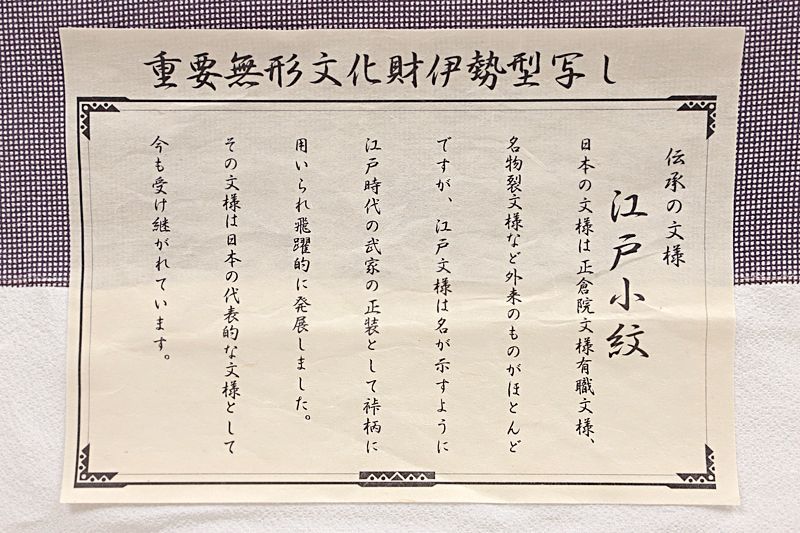 重要無形文化財伊勢型写し
伝承の文様
江戸小紋
日本の文様は正倉院文様有職文様、
名物裂文様など外来のものがほとんど
ですが、江戸文様は名が示すように
江戸時代の武家の正装として裃柄に
用いられ飛躍的に発展しました。
その文様は日本の代表的な文様として
今も受け継がれています。